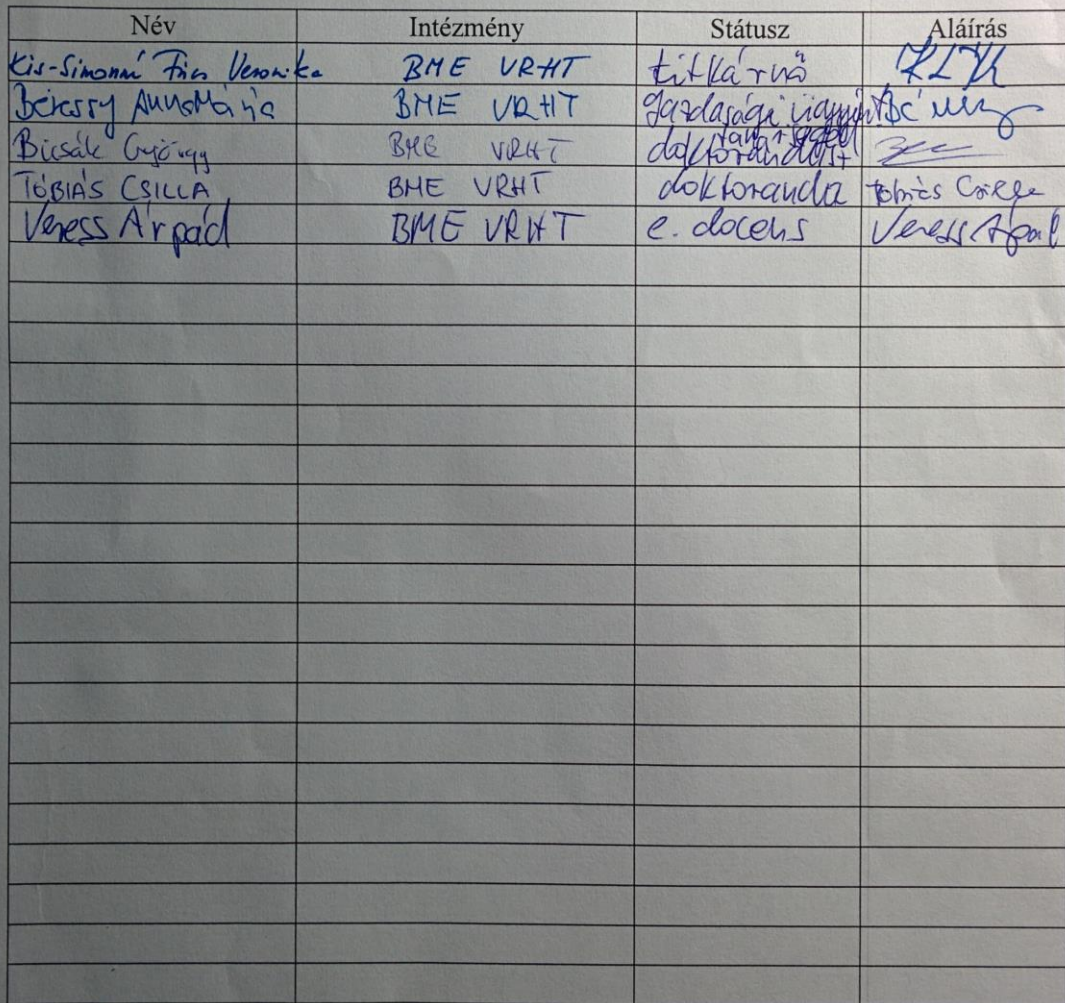 Név Intézmény Státusz Aláírás
Kis-Simonné Veronika BME VRHT titkárnő
Béressy AnnaMária BME VRHT gazdasági ügyint
Bicsák György BME VRHT
TÓBIÁS CSILLA BME VRHT doktoranda Tobiás Csilla
Veress Árpád BME VRHT e. docens Veress Árpád